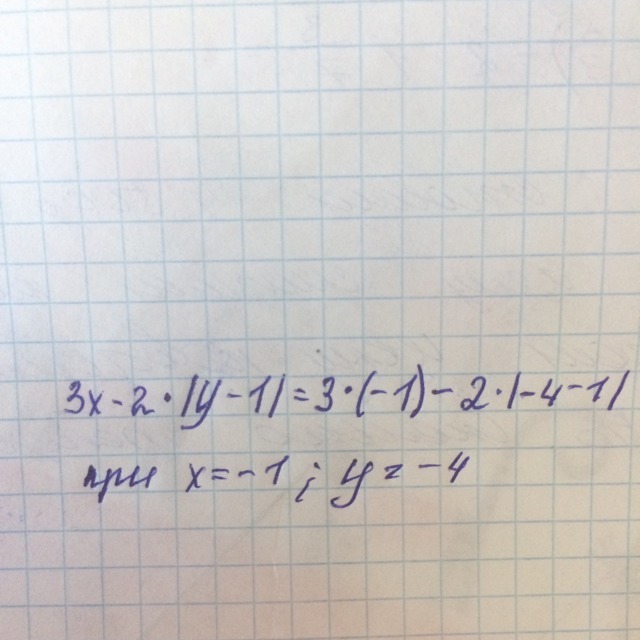 3x - 2 · |y - 1| = 3 · (-1) - 2 · |-4 - 1|
при x = -1 ; y = -4